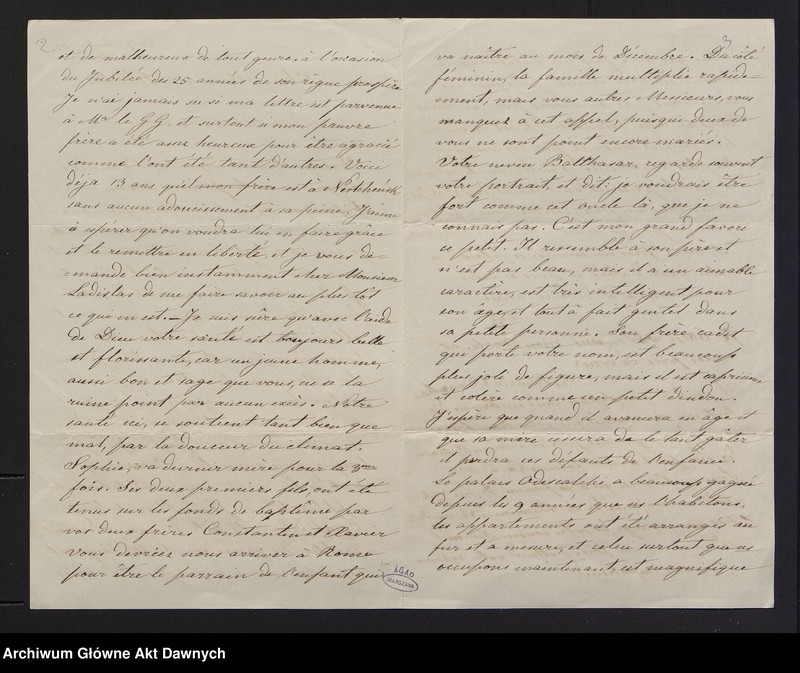 2
et de malheureux de tout genre, à l'occasion
du Jubilée des 25 années de son règne prospère.
Je n'ai jamais su si ma lettre est parvenue
à Mr le G.G. et surtout si mon pauvre
frère a été assez heureux pour être agracié
comme l'ont été tant d'autres. Voici
déja 13 ans que mon frère est à Nertchinsk
sans aucun adoucissement à sa peine. J'aime
à espérer qu'on voudra lui en faire grâce
et le remettre en liberté, et je vous de-
mande bien instamment cher Monsieur
Ladislas de me faire savoir au plus tôt
ce qui en est. — Je suis sûre qu'avec l'aide
de Dieu votre santé est toujours belle
et florissante, car un jeune homme,
aussi bon et sage que vous, ne se la
ruine point par aucun excès. Notre
santé ici, se soutient tant bien que
mal, par la douceur du climat.
Sophie, va devenir mère pour la 3me
fois. Ses deux premiers fils, ont été
tenus sur les fonds de baptême par
vos deux frères Constantin et Xavier
vous devriez nous arriver à Rome
pour être le parrain de l'enfant qui
3
va naître au mois de Décembre. Du côté
féminin, la famille multiplie rapide-
ment, mais vous autres Messieurs, vous
manquez à cet appel, puisque deux de
vous ne sont point encore mariés.
Votre neveu Balthasar, regarde souvent
votre portrait, et dit: je voudrais être
fort comme cet oncle là, que je ne
connais pas. C'est mon grand favori
ce petit. Il ressemble à son père et
n'est pas beau, mais il a un aimable
caractère, est très intelligent pour
son âge, et tout à fait gentil dans
sa petite personne. Son frère cadet
qui porte votre nom, est beaucoup
plus joli de figure, mais il est capricieux
et colère comme un petit dindon.
J'espère que quand il avancera en âge et
que sa mère cessera de le tant gâter
il perdra ces défauts de l'enfance.
Le palais Odescalchi a beaucoup gagné
depuis les 9 années que ns l'habitons,
les appartements ont été arrangés au
fur et à mesure, et celui surtout que ns
occupons maintenant, est magnifique
AGAD
WARSZAWA
Archiwum Główne Akt Dawnych